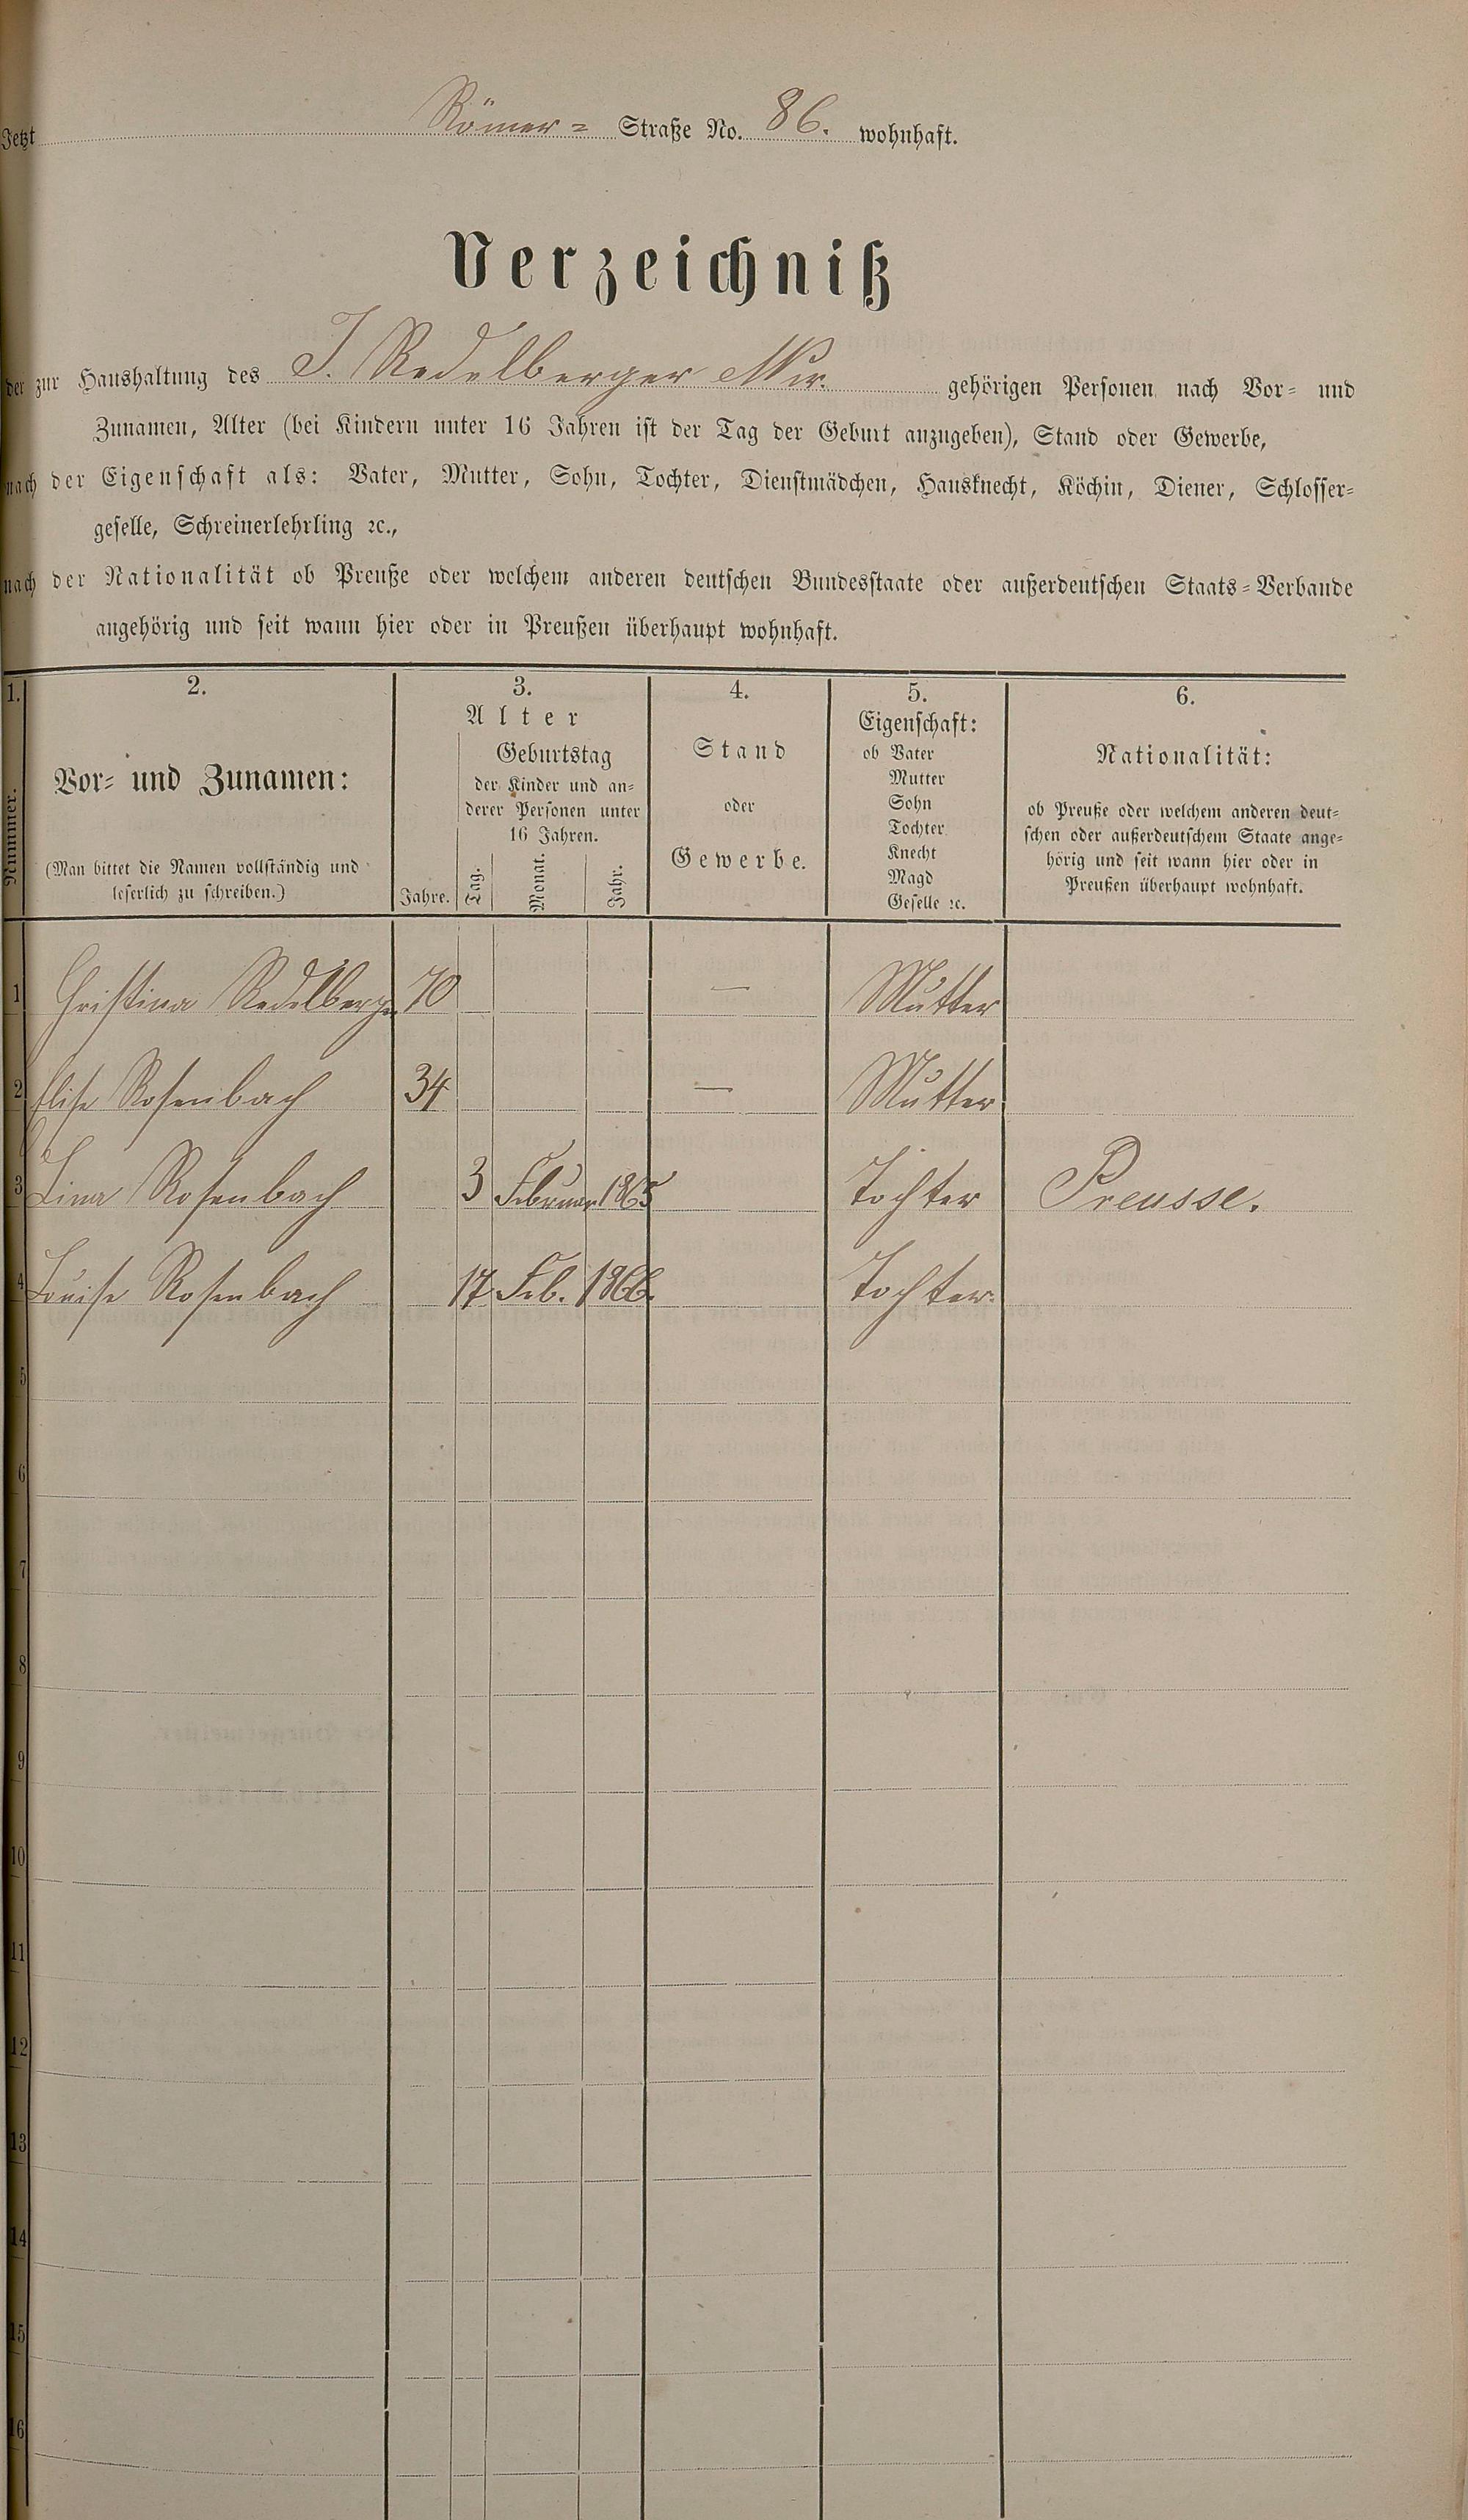 Jetzt Römer= Straße No. 86. wohnhaft.
Verzeichniß
der zur Haushaltung des J. Redelberger Wir. gehörigen Personen nach Vor= und
Zunamen, Alter (bei Kindern unter 16 Jahren ist der Tag der Geburt anzugeben), Stand oder Gewerbe,
nach der Eigenschaft als: Vater, Mutter, Sohn, Tochter, Dienstmädchen, Hausknecht, Köchin, Diener, Schlosser=
geselle, Schreinerlehrling ꝛc.,
nach der Nationalität ob Preuße oder welchem anderen deutschen Bundesstaate oder außerdeutschen Staats=Verbande
angehörig und seit wann hier oder in Preußen überhaupt wohnhaft.
1. 2. 3. 4. 5. 6.
Nummer.
Vor= und Zunamen:
(Man bittet die Namen vollständig und
leserlich zu schreiben.)
Alter
Jahre.
Geburtstag
der Kinder und an=
derer Personen unter
16 Jahren.
Tag. Monat. Jahr.
Stand
oder
Gewerbe.
Eigenschaft:
ob Vater
Mutter
Sohn
Tochter
Knecht
Magd
Geselle ꝛc.
Nationalität:
ob Preuße oder welchem anderen deut=
schen oder außerdeutschem Staate ange=
hörig und seit wann hier oder in
Preußen überhaupt wohnhaft.
1 Christina Redelberger 70 — Mutter
2 Elise Rosenbach 34 — Mutter
3 Lina Rosenbach 3 Februar 1865 Tochter Preusse.
4 Louise Rosenbach 17 Feb. 1866. Tochter
5
6
7
8
9
10
11
12
13
14
15
16